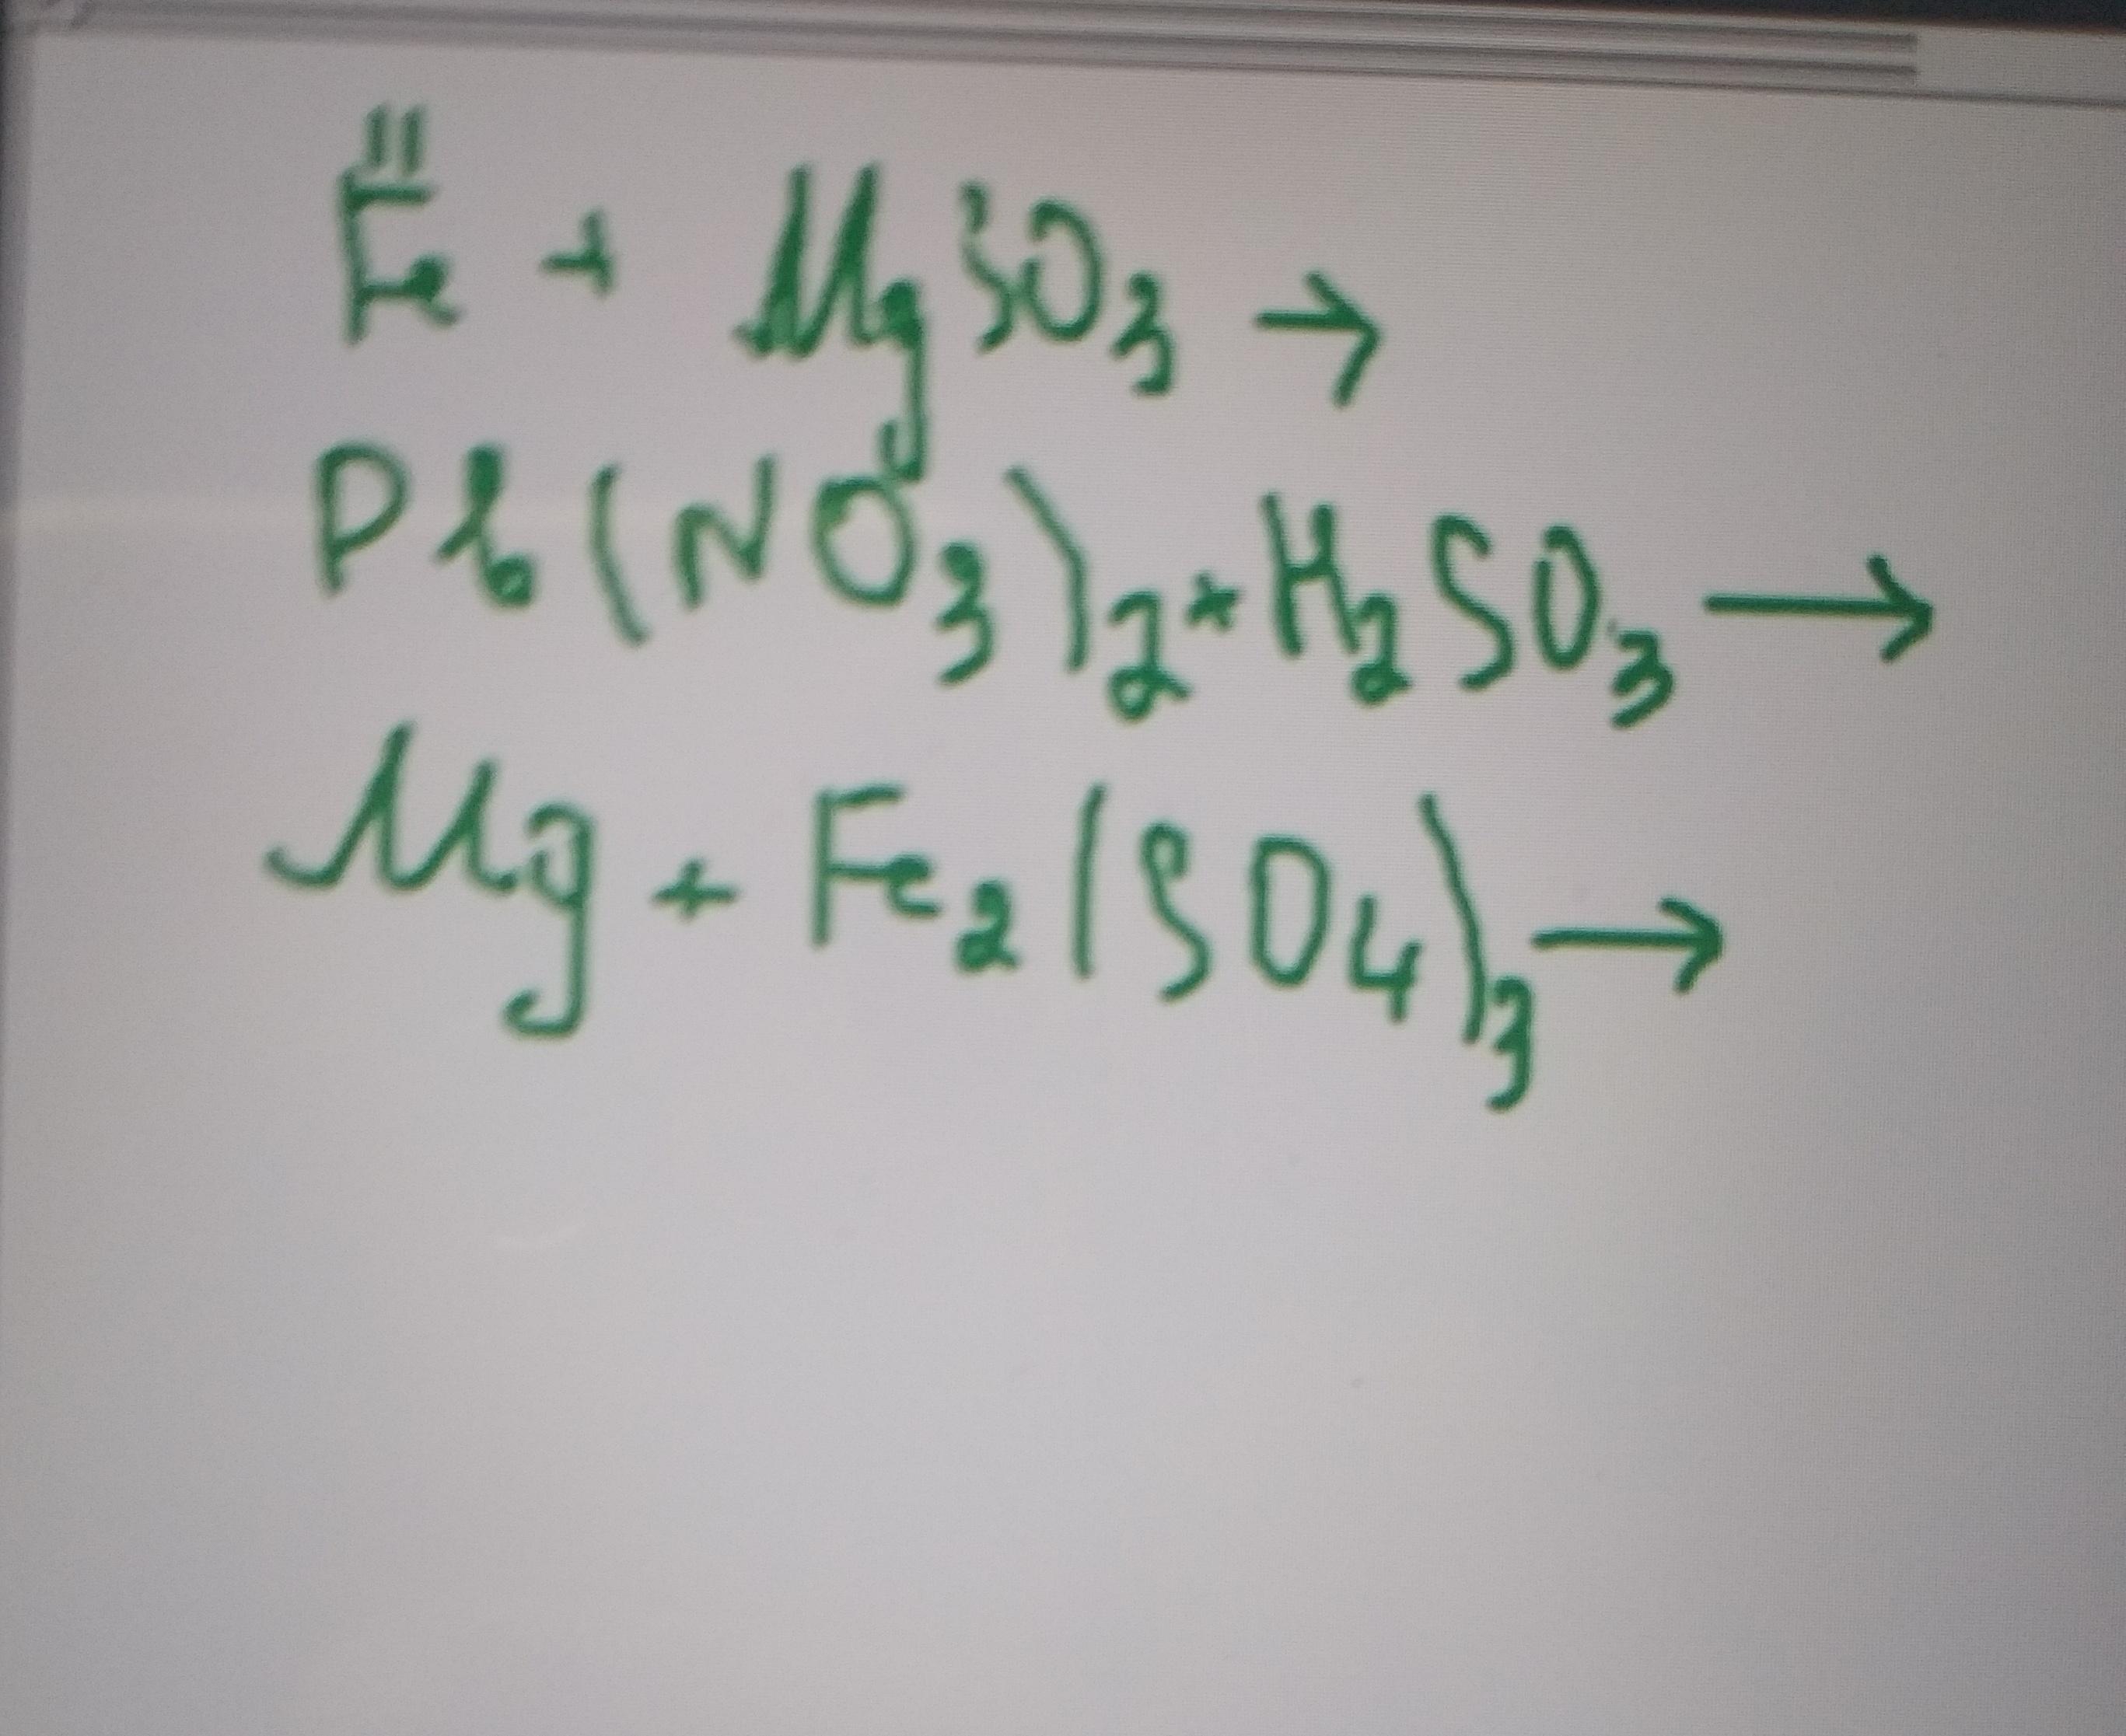 II
Fe + MgSO₃ →
Pb(NO₃)₂ + H₂SO₃ →
Mg + Fe₂(SO₄)₃ →